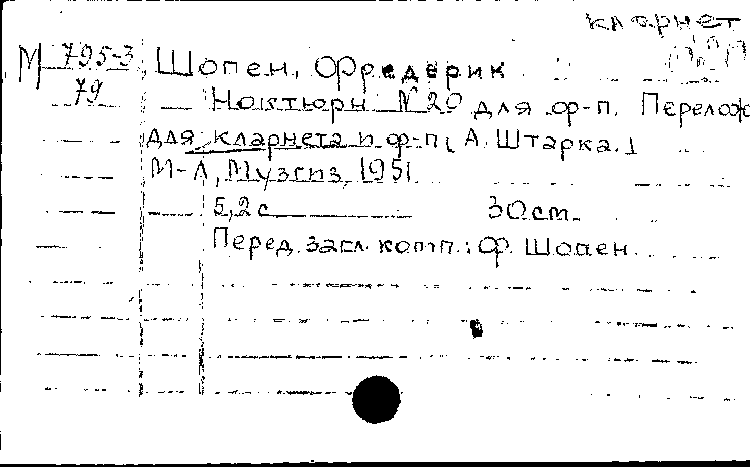 кларнет
М 795-3
79
Шопен, Фредерик
Ноктюрн N 20 для ф-п. Перелож
для кларнета и ф-п. А. Штарка.
М-Л, Музгиз, 1951.
5,2 с 30 см.
Перед. загл. комп.: Ф. Шопен.